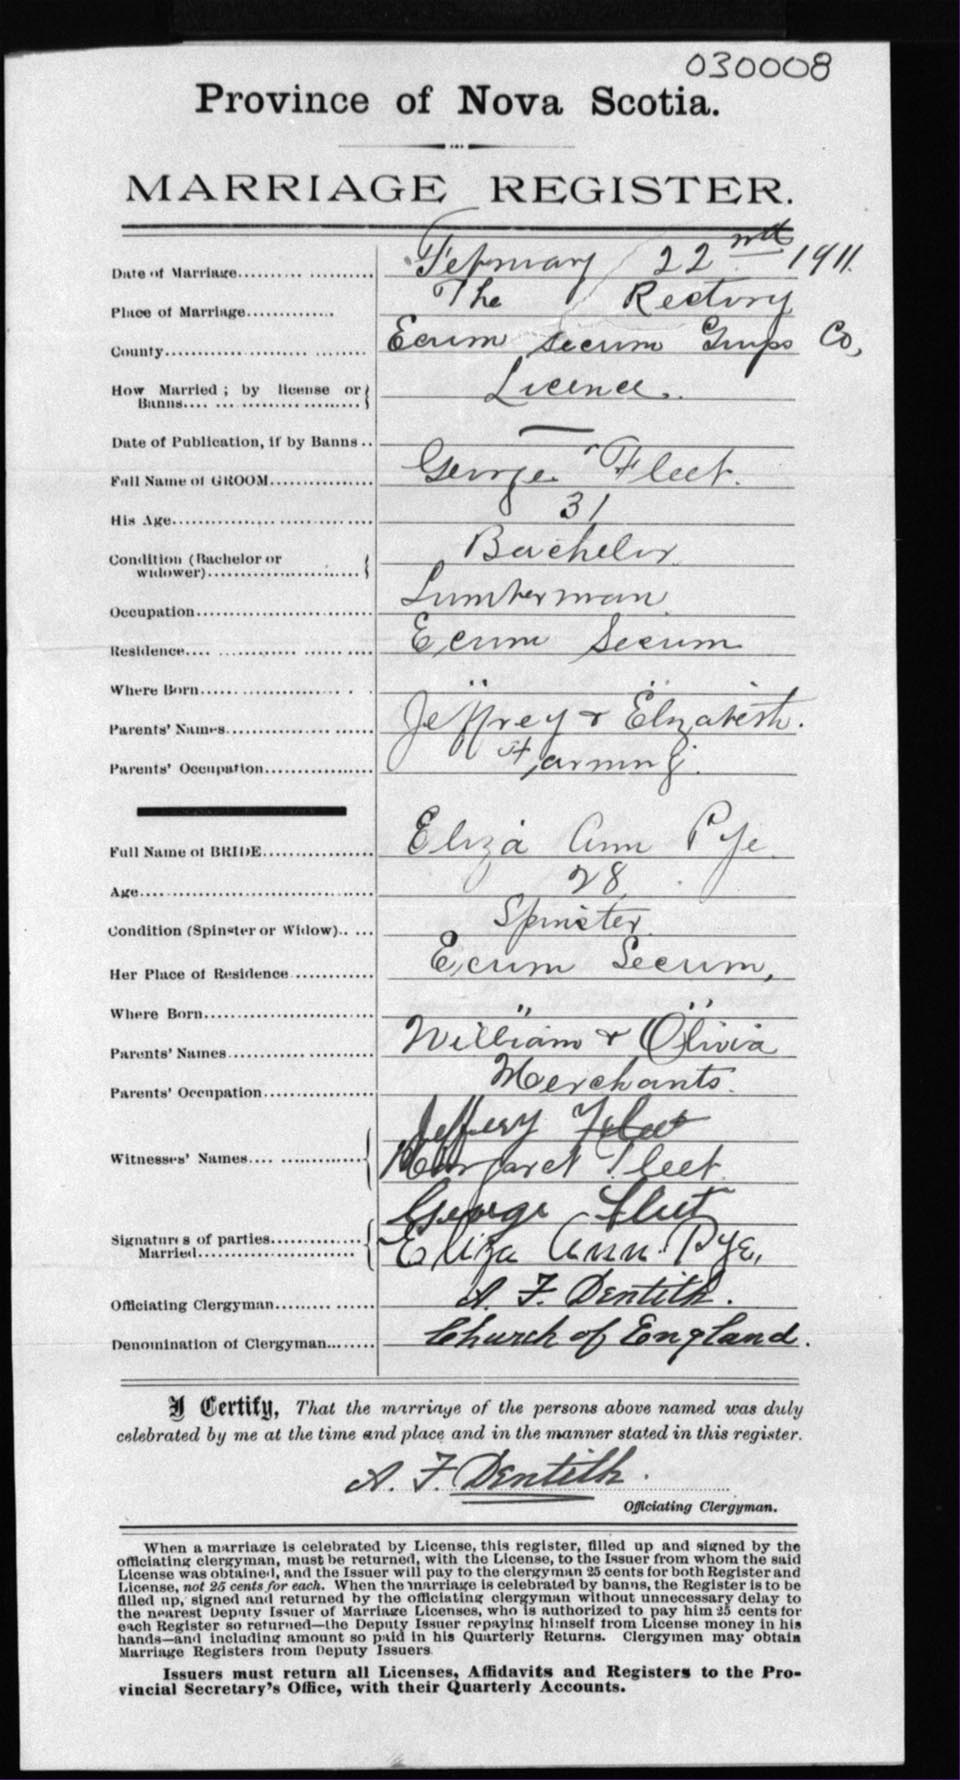 030008
Province of Nova Scotia.
MARRIAGE REGISTER.
Date of Marriage.... February 22nd 1911.
Place of Marriage.... The Rectory
County.... Ecum Secum Co,
How Married ; by license or
Banns.... Licence.
Date of Publication, if by Banns .. —
Full Name of GROOM.... George Fleet.
His Age.... 31
Condition (Bachelor or
widower).... Bachelor
Occupation.... Lumberman
Residence.... Ecum Secum
Where Born.... " "
Parents' Names.... Jeffrey & Elizabeth.
Parents' Occupation.... Farming.
Full Name of BRIDE.... Eliza Ann Pye
Age.... 28
Condition (Spinster or Widow).. ... Spinster
Her Place of Residence.... Ecum Secum,
Where Born.... " "
Parents' Names.... William & Olivia
Parents' Occupation.... Merchants.
Witnesses' Names.... Jeffery Fleet
Margaret Fleet
Signatures of parties.... George Fleet
Married.... Eliza Ann Pye,
Officiating Clergyman.... A. F. Dentith.
Denomination of Clergyman.... Church of England.
I Certify, That the marriage of the persons above named was duly
celebrated by me at the time and place and in the manner stated in this register.
A. F. Dentith.
Officiating Clergyman.
When a marriage is celebrated by License, this register, filled up and signed by the
officiating clergyman, must be returned, with the License, to the Issuer from whom the said
License was obtained, and the Issuer will pay to the clergyman 25 cents for both Register and
License, not 25 cents for each. When the marriage is celebrated by banns, the Register is to be
filled up, signed and returned by the officiating clergyman without unnecessary delay to
the nearest Deputy Issuer of Marriage Licenses, who is authorized to pay him 25 cents for
each Register so returned—the Deputy Issuer repaying himself from License money in his
hands—and including amount so paid in his Quarterly Returns. Clergymen may obtain
Marriage Registers from Deputy Issuers.
Issuers must return all Licenses, Affidavits and Registers to the Pro-
vincial Secretary's Office, with their Quarterly Accounts.